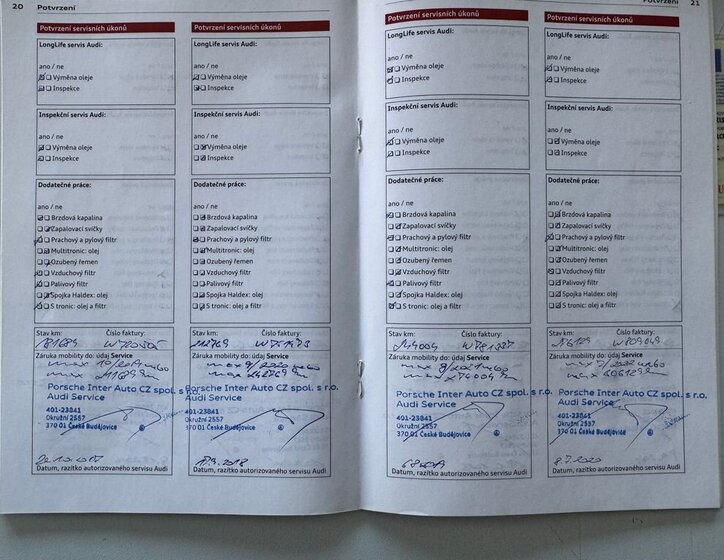 20 Potvrzení
Potvrzení servisních úkonů
LongLife servis Audi:
ano / ne
Výměna oleje
Inspekce
Inspekční servis Audi:
ano / ne
Výměna oleje
Inspekce
Dodatečné práce:
ano / ne
Brzdová kapalina
Zapalovací svíčky
Prachový a pylový filtr
Multitronic: olej
Ozubený řemen
Vzduchový filtr
Palivový filtr
Spojka Haldex: olej
S tronic: olej a filtr
Stav km: Číslo faktury:
Záruka mobility do: údaj Service
Porsche Inter Auto CZ spol. s r.o.
Audi Service
401-23841
Okružní 2557
370 01 České Budějovice
Datum, razítko autorizovaného servisu Audi
Potvrzení servisních úkonů
LongLife servis Audi:
ano / ne
Výměna oleje
Inspekce
Inspekční servis Audi:
ano / ne
Výměna oleje
Inspekce
Dodatečné práce:
ano / ne
Brzdová kapalina
Zapalovací svíčky
Prachový a pylový filtr
Multitronic: olej
Ozubený řemen
Vzduchový filtr
Palivový filtr
Spojka Haldex: olej
S tronic: olej a filtr
Stav km: Číslo faktury:
Záruka mobility do: údaj Service
Porsche Inter Auto CZ spol. s r.o.
Audi Service
401-23841
Okružní 2557
370 01 České Budějovice
17.9.2018
Datum, razítko autorizovaného servisu Audi
Potvrzení 21
Potvrzení servisních úkonů
LongLife servis Audi:
ano / ne
Výměna oleje
Inspekce
Inspekční servis Audi:
ano / ne
Výměna oleje
Inspekce
Dodatečné práce:
ano / ne
Brzdová kapalina
Zapalovací svíčky
Prachový a pylový filtr
Multitronic: olej
Ozubený řemen
Vzduchový filtr
Palivový filtr
Spojka Haldex: olej
S tronic: olej a filtr
Stav km: Číslo faktury:
Záruka mobility do: údaj Service
Porsche Inter Auto CZ spol. s r.o.
Audi Service
401-23841
Okružní 2557
370 01 České Budějovice
Datum, razítko autorizovaného servisu Audi
Potvrzení servisních úkonů
LongLife servis Audi:
ano / ne
Výměna oleje
Inspekce
Inspekční servis Audi:
ano / ne
Výměna oleje
Inspekce
Dodatečné práce:
ano / ne
Brzdová kapalina
Zapalovací svíčky
Prachový a pylový filtr
Multitronic: olej
Ozubený řemen
Vzduchový filtr
Palivový filtr
Spojka Haldex: olej
S tronic: olej a filtr
Stav km: Číslo faktury:
Záruka mobility do: údaj Service
Porsche Inter Auto CZ spol. s r.o.
Audi Service
401-23841
Okružní 2557
370 01 České Budějovice
8.7.2020
Datum, razítko autorizovaného servisu Audi